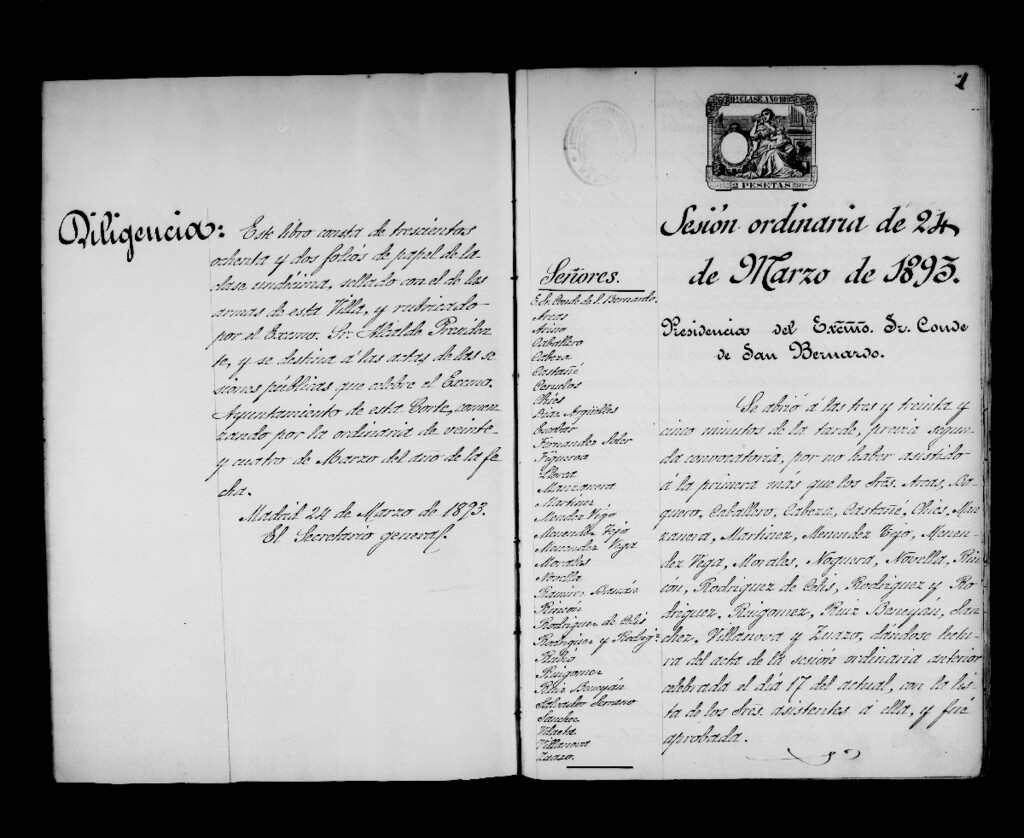 Diligencia: Este libro consta de trescientos
ochenta y dos folios de papel de la
clase undécima, sellado con el de las
armas de esta Villa, y rubricado
por el Excmo. Sr. Alcalde Presiden
te, y se destina á las actas de las se
siones públicas que celebre el Excmo.
Ayuntamiento de esta Corte, comen
zando por la ordinaria de veinte
y cuatro de Marzo del año de la fe
cha.
Madrid 24 de Marzo de 1893.
El Secretario general
1
11ª CLASE AÑO 1893
2 PESETAS
Sesión ordinaria de 24
de Marzo de 1893.
Presidencia del Excmo. Sr. Conde
de San Bernardo.
Señores.
E. Sr. Conde de S. Bernardo.
Arcas
Caballero
Cabeza
Castañé
Ceruelos
Chies
Diaz Argüelles
Escobar
Fernandez Soler
Figueroa
Lloret
Manzanera
Martinez
Mendez Vigo
Menendez Tejo
Menendez Vega
Morales
Novella
Ramirez
Rincón
Rodriguez de Celis
Rodriguez y Rodrigz
Rubio
Ruigomez
Ruiz Beneyán
Salvador Serrano
Sanchez
Villanova
Zuazo.
Se abrió á las tres y treinta y
cinco minutos de la tarde, previa segun
da convocatoria, por no haber asistido
á la primera más que los Sres. Arcas, Ba
quero, Caballero, Cabeza, Castañé, Chies, Man
zanera, Martinez, Menendez Tejo, Menen
dez Vega, Morales, Noguera, Novella, Rin
cón, Rodriguez de Celis, Rodriguez y Ro
driguez, Ruigomez, Ruiz Beneyán, San
chez, Villanova y Zuazo, dándose lectu
ra del acta de la sesión ordinaria anterior
celebrada el día 17 del actual, con la lis
ta de los Sres. asistentes á ella, y fué
aprobada.